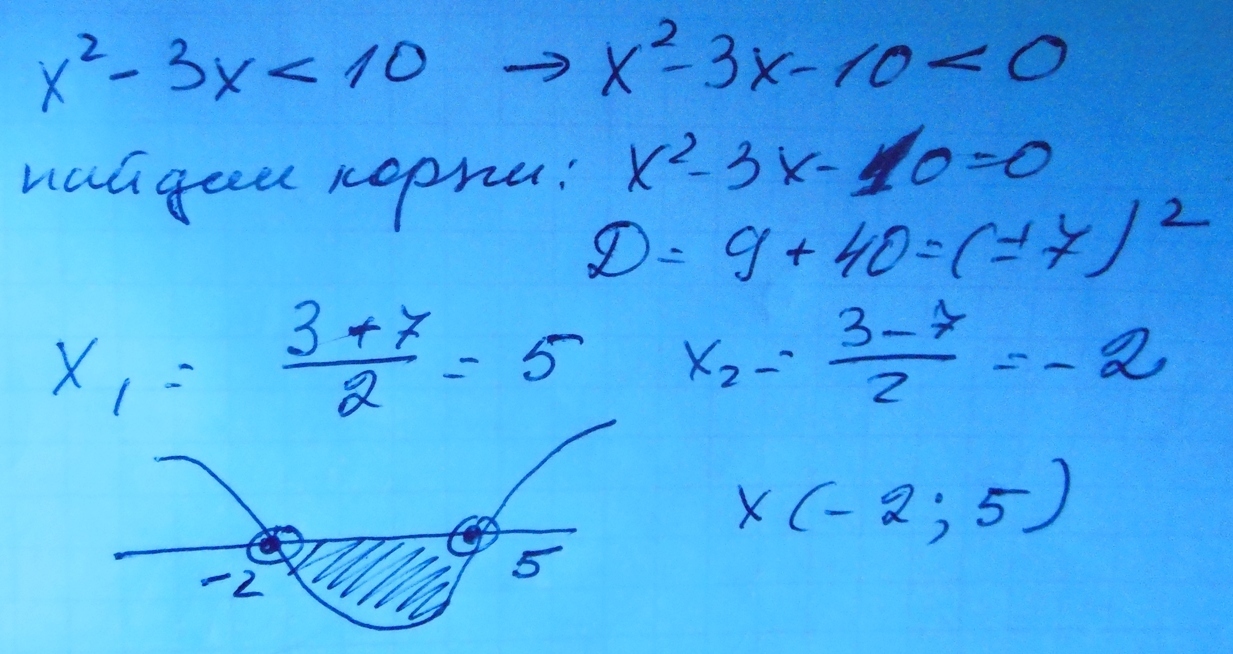 x² - 3x < 10 → x² - 3x - 10 < 0
найдем корни: x² - 3x - 10 = 0
D = 9 + 40 = (±7)²
x₁ = (3 + 7)/2 = 5 x₂ = (3 - 7)/2 = -2
x (-2; 5)
-2 5